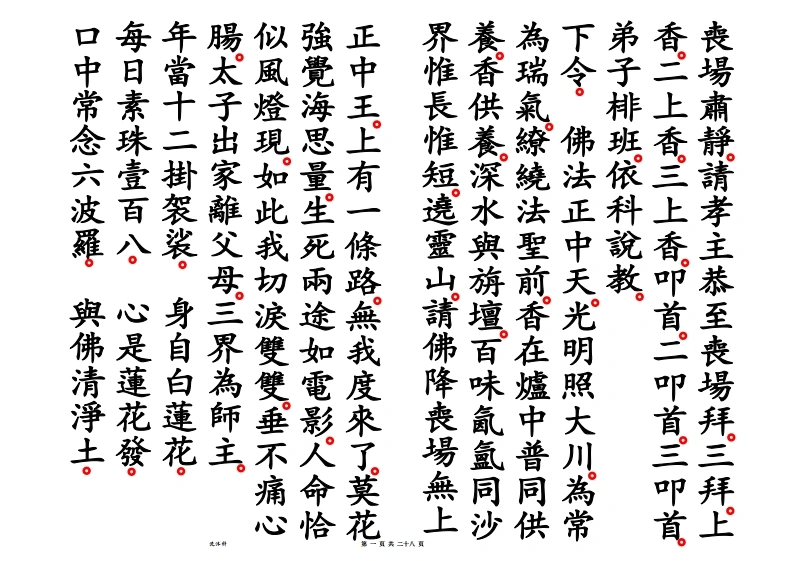 喪場肅靜請孝主恭至喪場拜三拜上
香二上香三上香叩首二叩首三叩首
弟子排班依科說教
下令　佛法正中天光明照大川為常
為瑞氣繚繞法聖前香在爐中普同供
養香供養深水與旃壇百味氤氳同沙
界惟長惟短遶靈山請佛降喪場無上
正中王上有一條路無我度來了莫花
強覺海思量生死兩途如電影人命恰
似風燈現如此我切淚雙雙垂不痛心
腸太子出家離父母三界為師主
年當十二掛袈裟　身自白蓮花
每日素珠壹百八　心是蓮花發
口中常念六波羅　與佛清淨土
第一頁共二十八頁